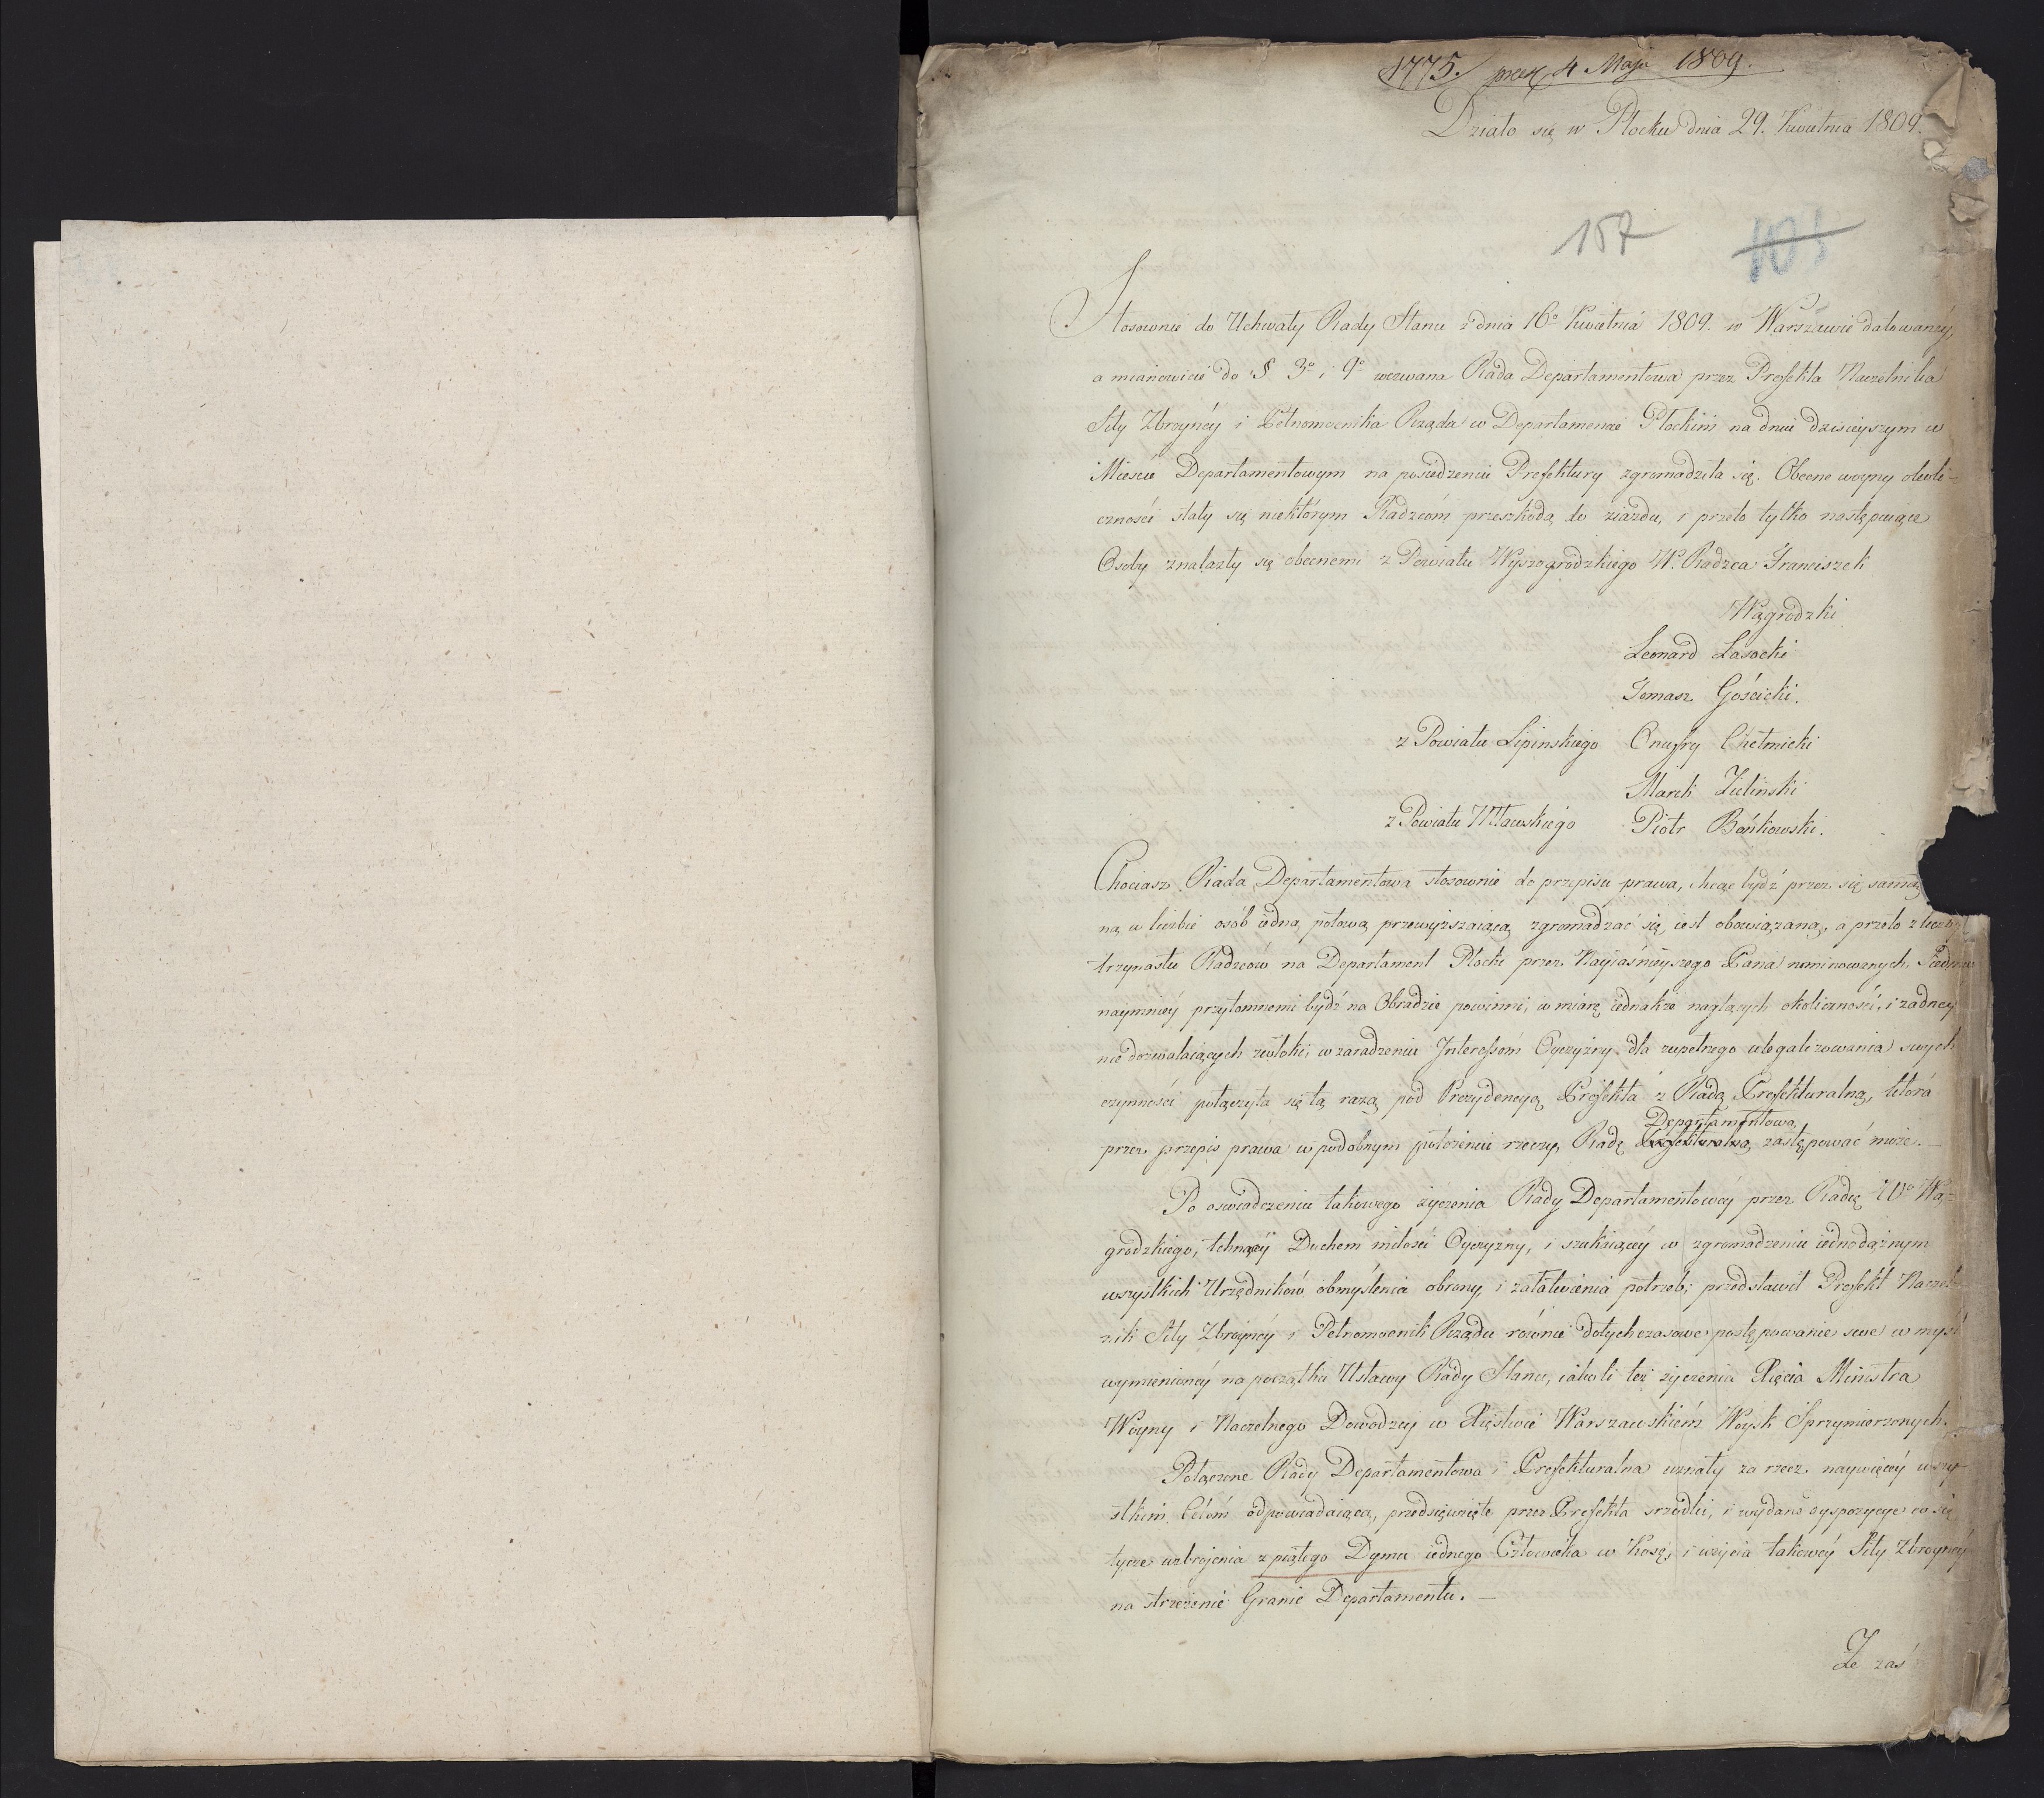 1775. prez 4 Maja 1809.
Działo się w Płocku dnia 29. Kwietnia 1809.
157 105
Stosownie do Uchwały Rady Stanu z dnia 16o Kwietnia 1809. w Warszawie datowanéy,
a mianowicie do § 3o i 9o wezwana Rada Departamentowa przez Prefekta Naczelnika
Siły Zbroynéy i Pełnomocnika Rządu w Departamencie Płockim na dniu dzisieyszym w
Mieście Departamentowym na posiedzeniu Prefektury zgromadziła się. Obecne woyny okoli-
czności stały się niektórym Radzcóm przeszkodą do ziazdu, i przeto tylko następuiące
Osoby znalazły się obecnemi z Powiatu Wyszogrodzkiego W. Radzca Franciszek
Wągrodzki
Leonard Lasocki
Tomasz Gościcki.
z Powiatu Lipinskiego Onufry Chełmicki
Marek Zielinski
z Powiatu Mławskiego Piotr Bońkowski.
Chociasz Rada Departamentowa stosownie do przepisu prawa, chcąc bydź przez się samą
ną w liczbie osób iedną połową przewyższaiącą zgromadzać się iest obowiązaną, a przeto z liczby
trzynastu Radzców na Departament Płocki przez Nayiaśnieyszego Pana nominowanych, Siedmiu
naymniéy przytomnemi bydź na Obradzie powinni, w miarę iednakże naglących okoliczności, i żadney
nie dozwalaiących zwłoki, w zaradzeniu Interessóm Oyczyzny, dla zupełnego ulegalizowania swych
czynności połączyła się tą razą pod Prezydencyą Prefekta z Radą Prefekturalną, która
Departamentową
przez przepis prawa w podobnym położeniu rzeczy, Radę Prefekturalną zastępować może. —
Po oswiadczeniu takowego życzenia Rady Departamentowéy przez Radcę Wo Wą-
grodzkiego, tchnącéy Duchem miłości Oyczyzny, i szukaiącéy w zgromadzeniu iednodążnym
wszystkich Urzędników obmyślenia obrony, i załatwienia potrzeb; przedstawił Prefekt Naczel-
nik Siły Zbroynéy i Pełnomocnik Rządu równie dotychczasowe postępowanie swe w myśl
wymienionéy na początku Ustawy Rady Stanu, iakoli też życzenia Xięcia Ministra
Woyny i Naczelnego Dowodzcy w Xięstwie Warszawskiém Woysk Sprzymierzonych.
Połączone Rady Departamentowa i Prefekturalna uznały za rzecz naywięcéy wszy-
stkim Celóm odpowiadaiącą, przedsięwzięte przez Prefekta srzodki, i wydane dyspozycye co się
tycze uzbrojenia z piątego Dymu iednego Człowieka w Kosę, i użycia takowéy Siły Zbroynéy
na strzeżenie Granic Departamentu. —
Że zaś